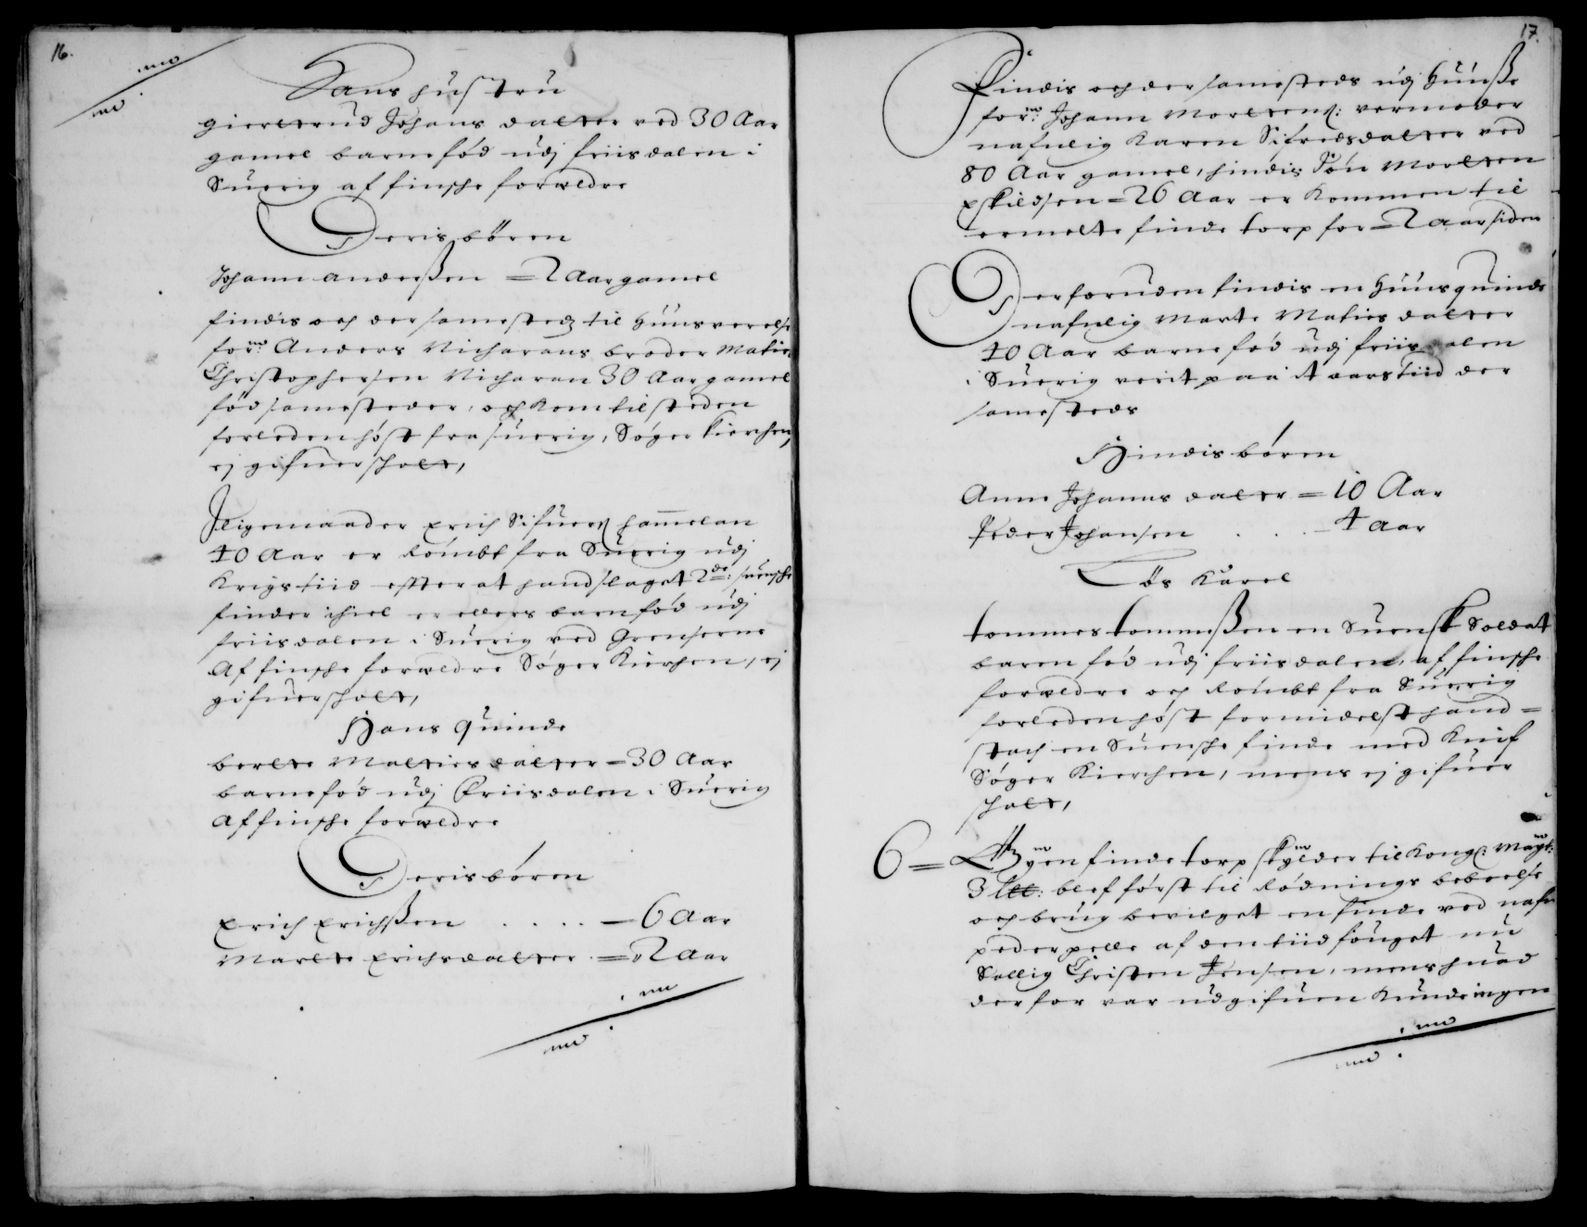 16.
Hans hustru
giertrud Johans datter ved 30 Aar
gamel barnefød udj friisdalen i
Suerig af finsche forældre
Deris børen
Johann anderßen = 2 Aar gamel
findis och der samesteds til huus verelse
for:ne Anders Nicharans broder Maties
Christophersen Nicharan 30 Aar gamel
fød samesteder, och kom til steden
forleden høst fra suerig, Søger kierchen,
ej gifuer schatt,
I ligemaader Erich Sifuers: hammelan
40 Aar er Rømbt fra Suerig udj
Krigstiid effter at hand slaget 2de: suensche
finder ihiel er ellers barnfød udj
friisdalen i Suerig ved Grentserne
Af finsche forældre Søger Kirchen, ej
gifuer schatt,
Hans Quinde
berte Matties datter = 30 Aar
barnefød udj Friisdalen i Suerig
Af finsche forældre
Deris børen
Erich Erichßen . . . . . = 6 Aar
Marte Erichsdatter = 2 Aar
17.
Findis och der samesteds udj Huuße
for:ne Johann Mortens: vermoder
nafnlig Karen Sifredsdatter ved
80 Aar gamel, hindis Søn Morten
Eskildsen = 26 Aar er kommen til
ermelte finde torp for = 2 aar siden
Derforuden findis en Huusquinde
nafnlig Marte Maties datter
40 Aar barnefød udj friisdalen
i Suerig verit paa it aars tiid der
samesteds
Hindis børen
Anne Johanns datter = 10 Aar
Peder Johansen . . . . 4 Aar
Løs Karel
tommes tommeßen en Suensk Soldat
baren fød udj friisdalen, af finsche
forældre och Rømbt fra Suerig
forleden høst formidelst hand =
stach en Suensche finde med Knif
Søger Kierchen, mens ej gifuer
schatt,
6 = Byen finde torp skylder til Kong: Mayt:
3 blef først til Rødnings beboelse
och brug bevilget en finde ved nafn
peder pelle af den tiid fouget nu
Sallig Christen Jensen, mens huad
derfor var udgifuen kunde ingen